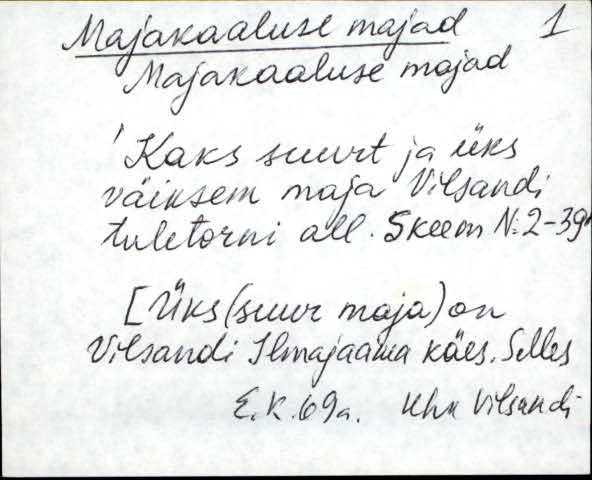 Majakaaluse majad 1
Majakaaluse majad
'Kaks suurt ja üks
väiksem maja Vilsandi
tuletorni all. Skeem N: 2-39'
[Üks (suur maja) on
Vilsandi Ilmajaama käes. Selles
E.K. 69a. Khk Vilsandi